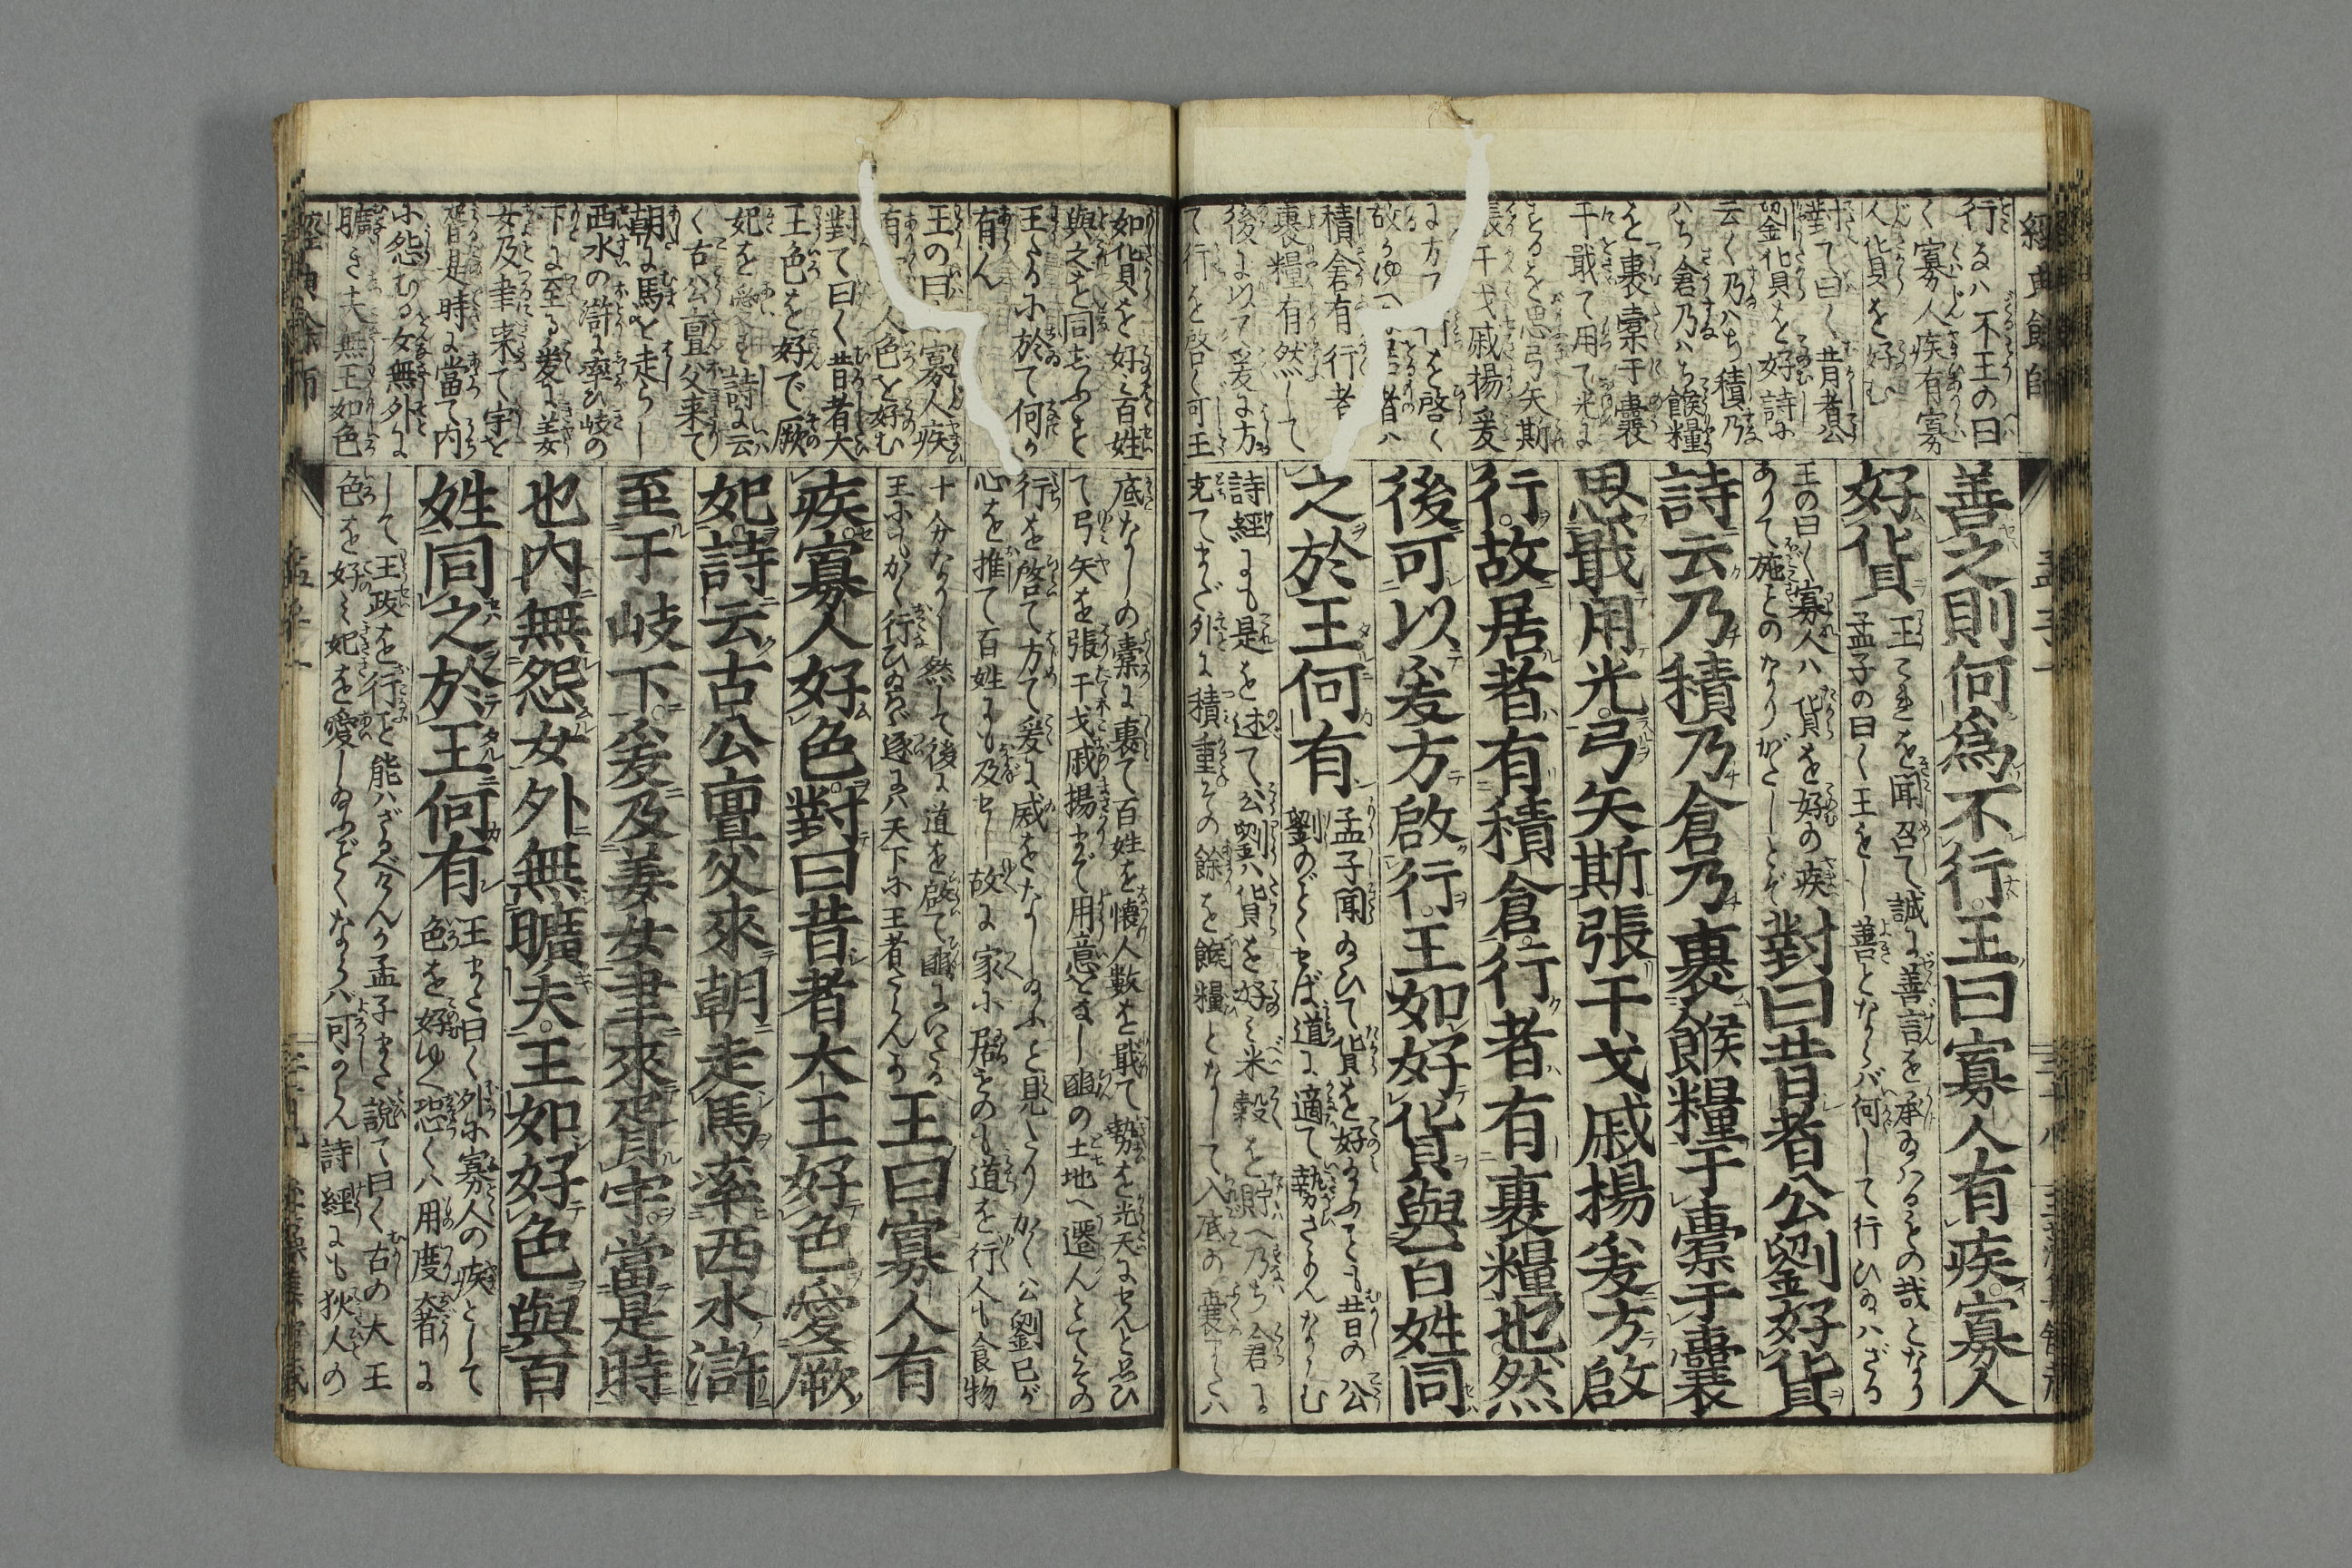 經典餘師
孟子一
行るハ不王の曰
く寡人疾有寡
人貨を好む
對て曰く昔者公
劉貨を好詩に
云く乃ハち積乃
ハち倉乃ハち餱糧
を裹橐于囊
戢て用て光に
することを思弓矢斯
張干戈戚揚爰
積倉有行者
裹糧有然して
後に以て爰に方
て行を啓く可王
善之則何爲不行王曰寡人有疾寡人
好貨
王これを聞召て誠に善言を承るとの哉となり
孟子の曰く王もし善とならバ何して行ひ給ハざる
王の曰く寡人ハ貨を好の疾
ありて施とのなりがたしとぞ
對曰昔者公劉好貨
詩云乃積乃倉乃裹餱糧于橐于囊
思戢用光弓矢斯張干戈戚揚爰方啟
行故居者有積倉行者有裹糧也然
後可以爰方啟行王如好貨與百姓同
之於王何有
孟子聞給ひて貨を好給ふても昔の公
劉のごとくせば道に適て
詩經にも是を述て公劉ハ貨を好ミ米穀を貯へ乃ち倉に
充てまだ外に積重その餘を餱糧となして入底の囊または
如貨を好ミ百姓
與之を同じふせば
王たるに於て何か
有ん
王の曰く寡人疾
有寡人色を好む
對て曰く昔者大
王色を好で厥
妃を愛す詩に云
く古公亶父来て
朝に馬を走らし
西水の滸に率ひ岐の
下に至る爰に姜
女及聿来て宇を
胥是時に當て内
に怨むる女無外に
曠き夫無王如色
底なしの橐に裹て百姓を懐人數を戢て勢を光天にせんと思ひ
て弓矢を張干戈戚揚まで用意をなし豳の土地へ遷んとてその
行を啓て方て爰に威をなし給ふと見たりかく公劉己が
心を推て百姓にも及せし故に家に居ものも道を行人も食物
十分なりし然して後に道を啟て豳にいたる
王にもかく行ひ給ハバ遂にハ天下に王者たらんか
王曰寡人有
疾寡人好色對曰昔者大王好色愛厥
妃詩云古公亶父來朝走馬率西水滸
至于岐下爰及姜女聿來胥宇當是時
也内無怨女外無曠夫王如好色與百
姓同之於王何有
王また曰く外に寡人の疾として
色を好ゆへ恐くハ用度奢に
して王政を行こと能ハざるべからんか孟子また說て曰く古の大王
色を好ミ妃を愛し給ふごとくならバ可からん詩經にも狄人の